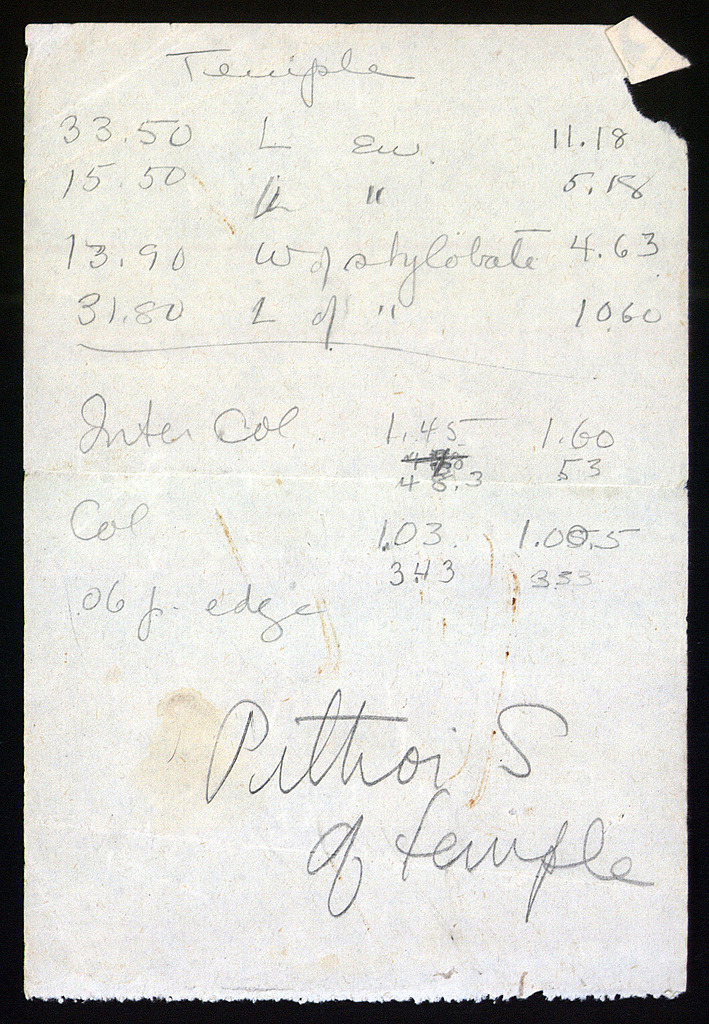 Temple
33.50 L Ew. 11.18
15.50 " 5.18
13.90 W of stylobate 4.63
31.80 L of " 10.60
Inter Col. 1.45 1.60
48.3 53
Col 1.03 1.05.5
343 353
.06 fr. edge
Pithoi S
of temple